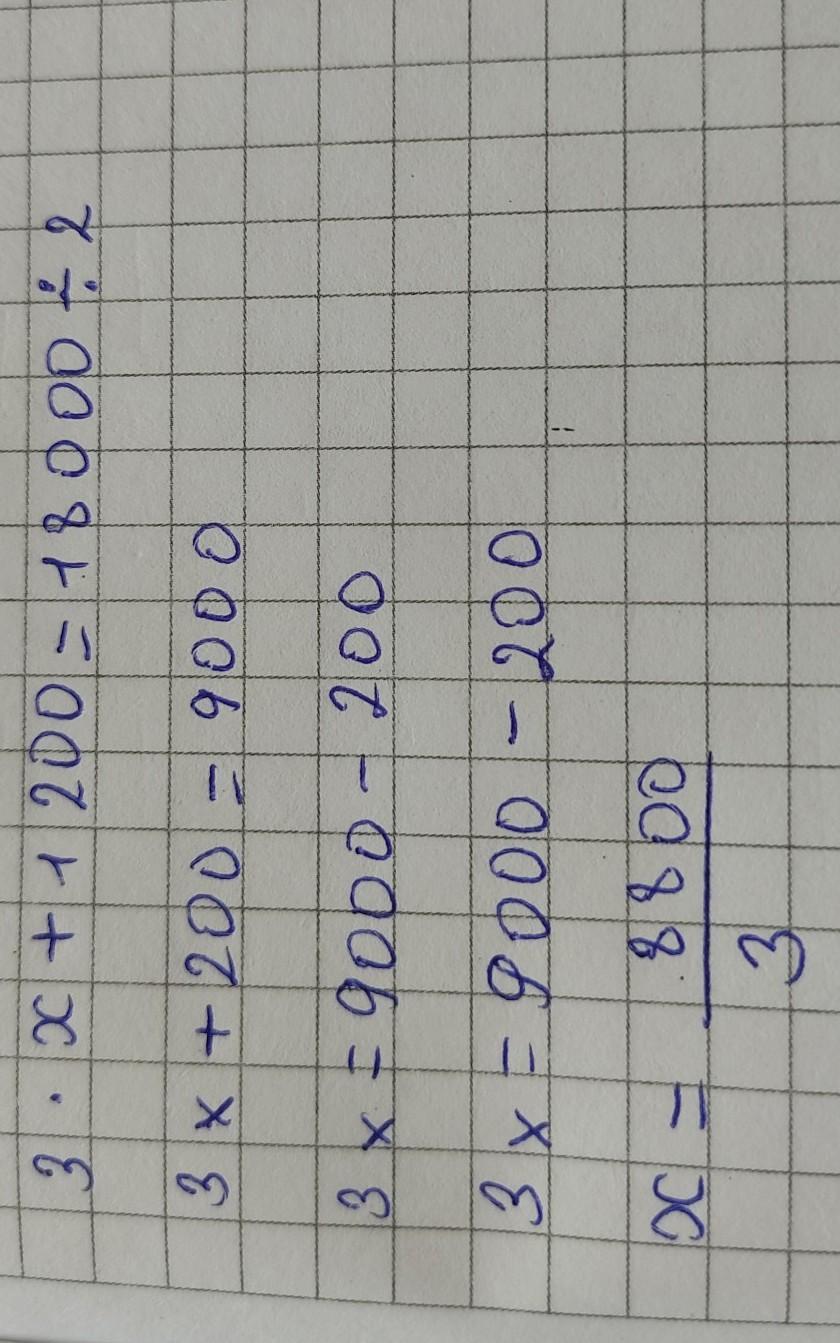 3 · x + 1 200 = 18 000 ÷ 2
3 x + 200 = 9000
3 x = 9000 - 200
3 x = 9000 - 200
x = 8800
3